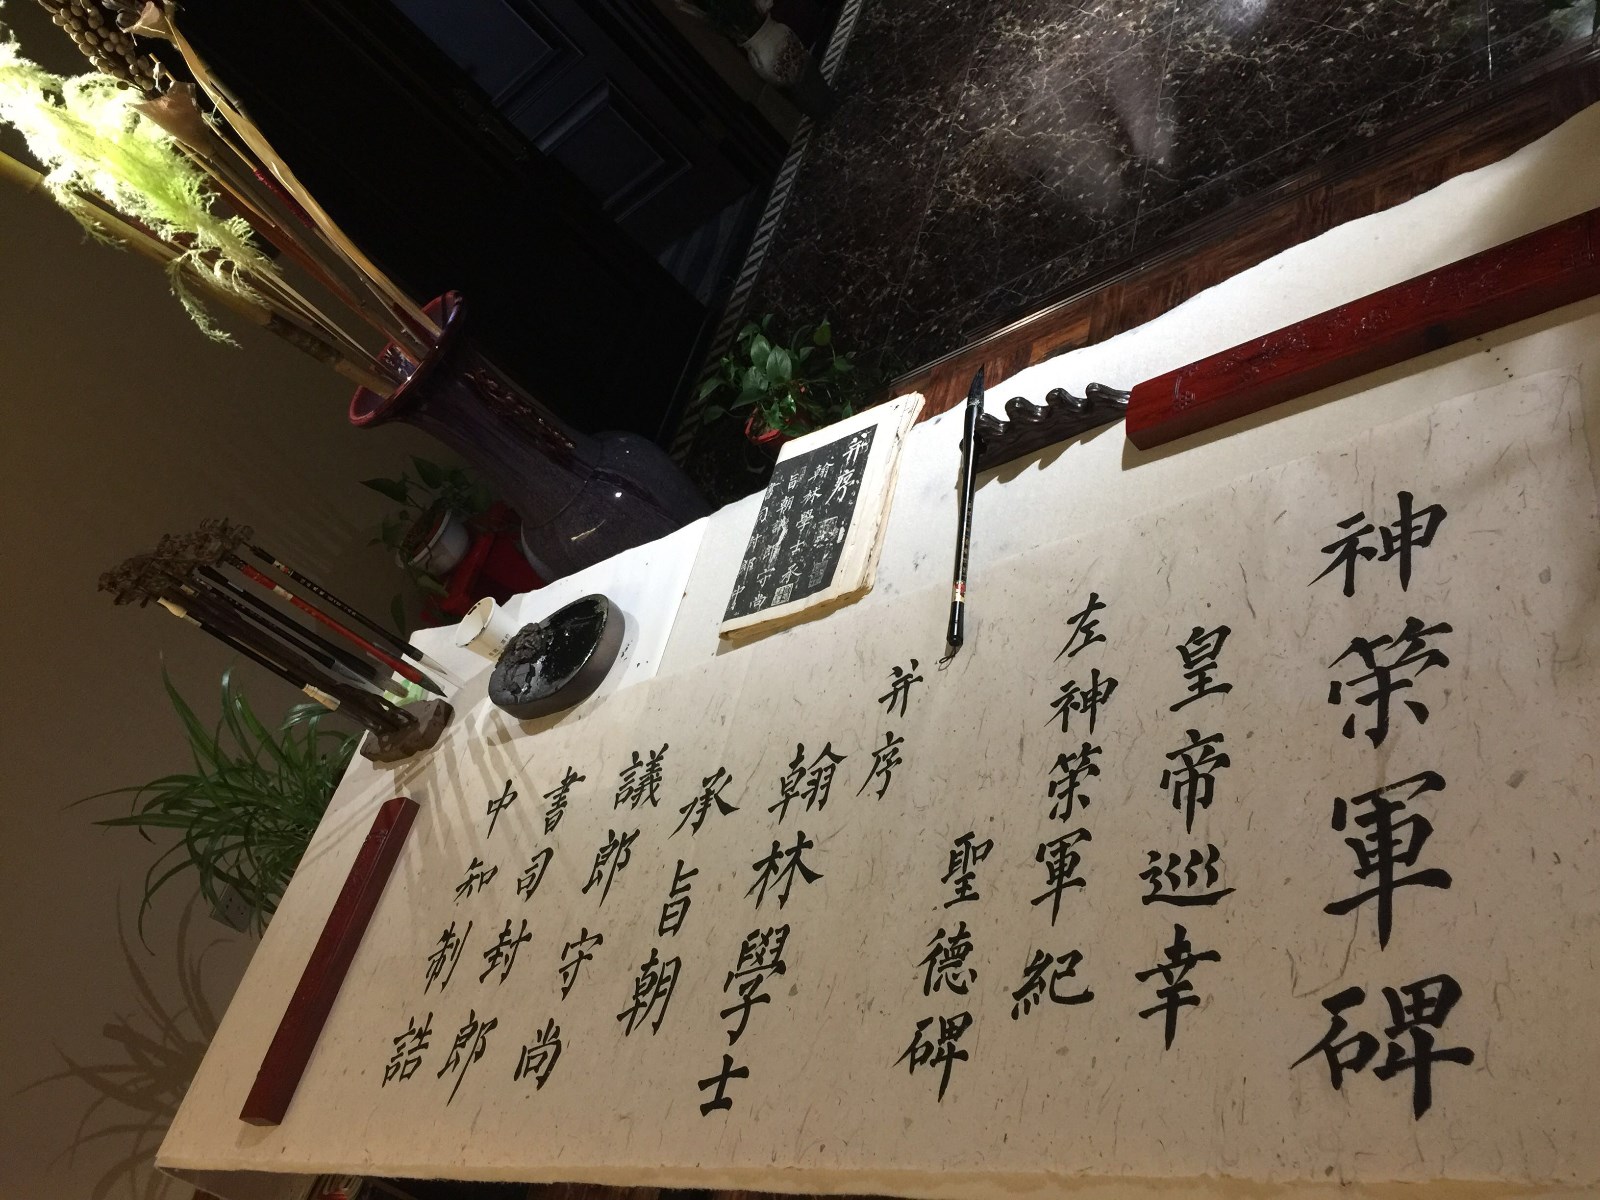 神策軍碑
皇帝巡幸
左神策軍紀
聖德碑
并序
翰林學士
承旨朝
議郎守尚
書司封郎
中知制誥
并序
翰林學士承
旨朝議郎守尚
書司封郎中